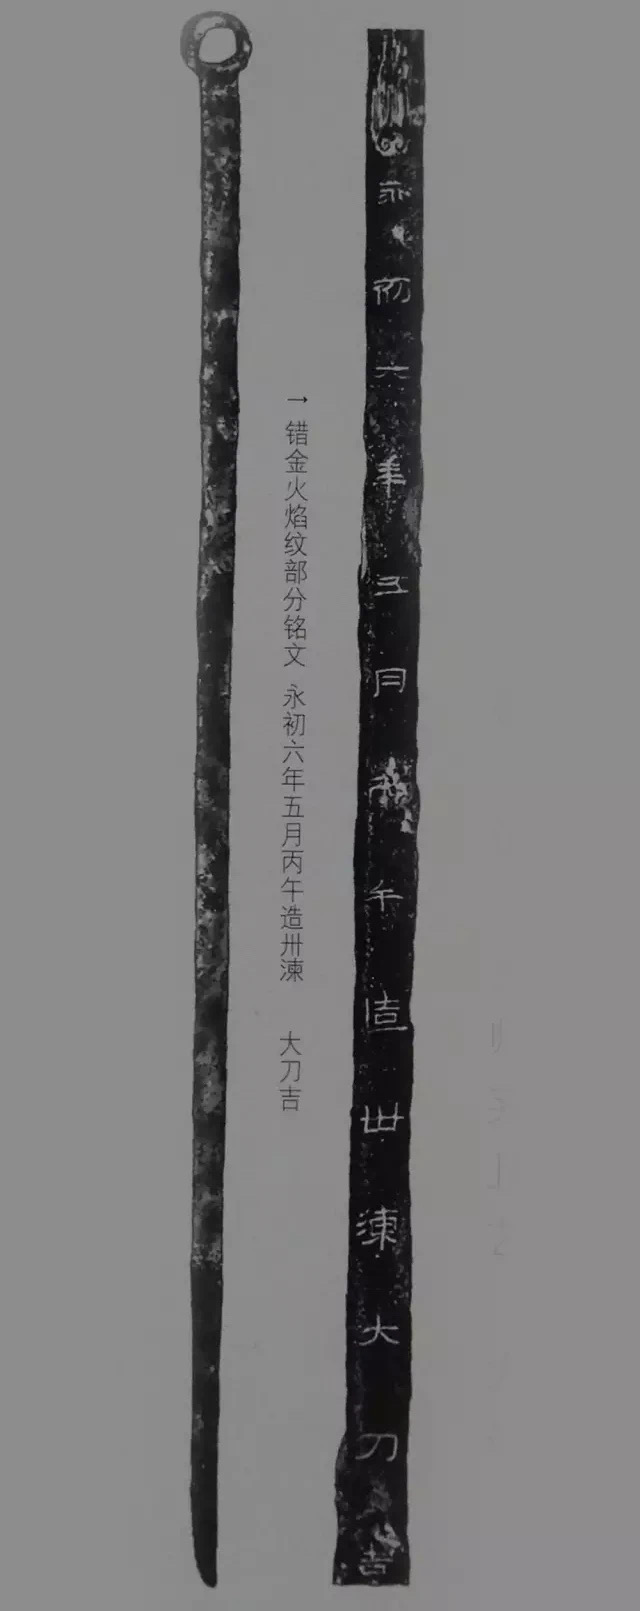 永初六年五月丙午造卅湅大刀吉
→错金火焰纹部分铭文 永初六年五月丙午造卅湅 大刀吉